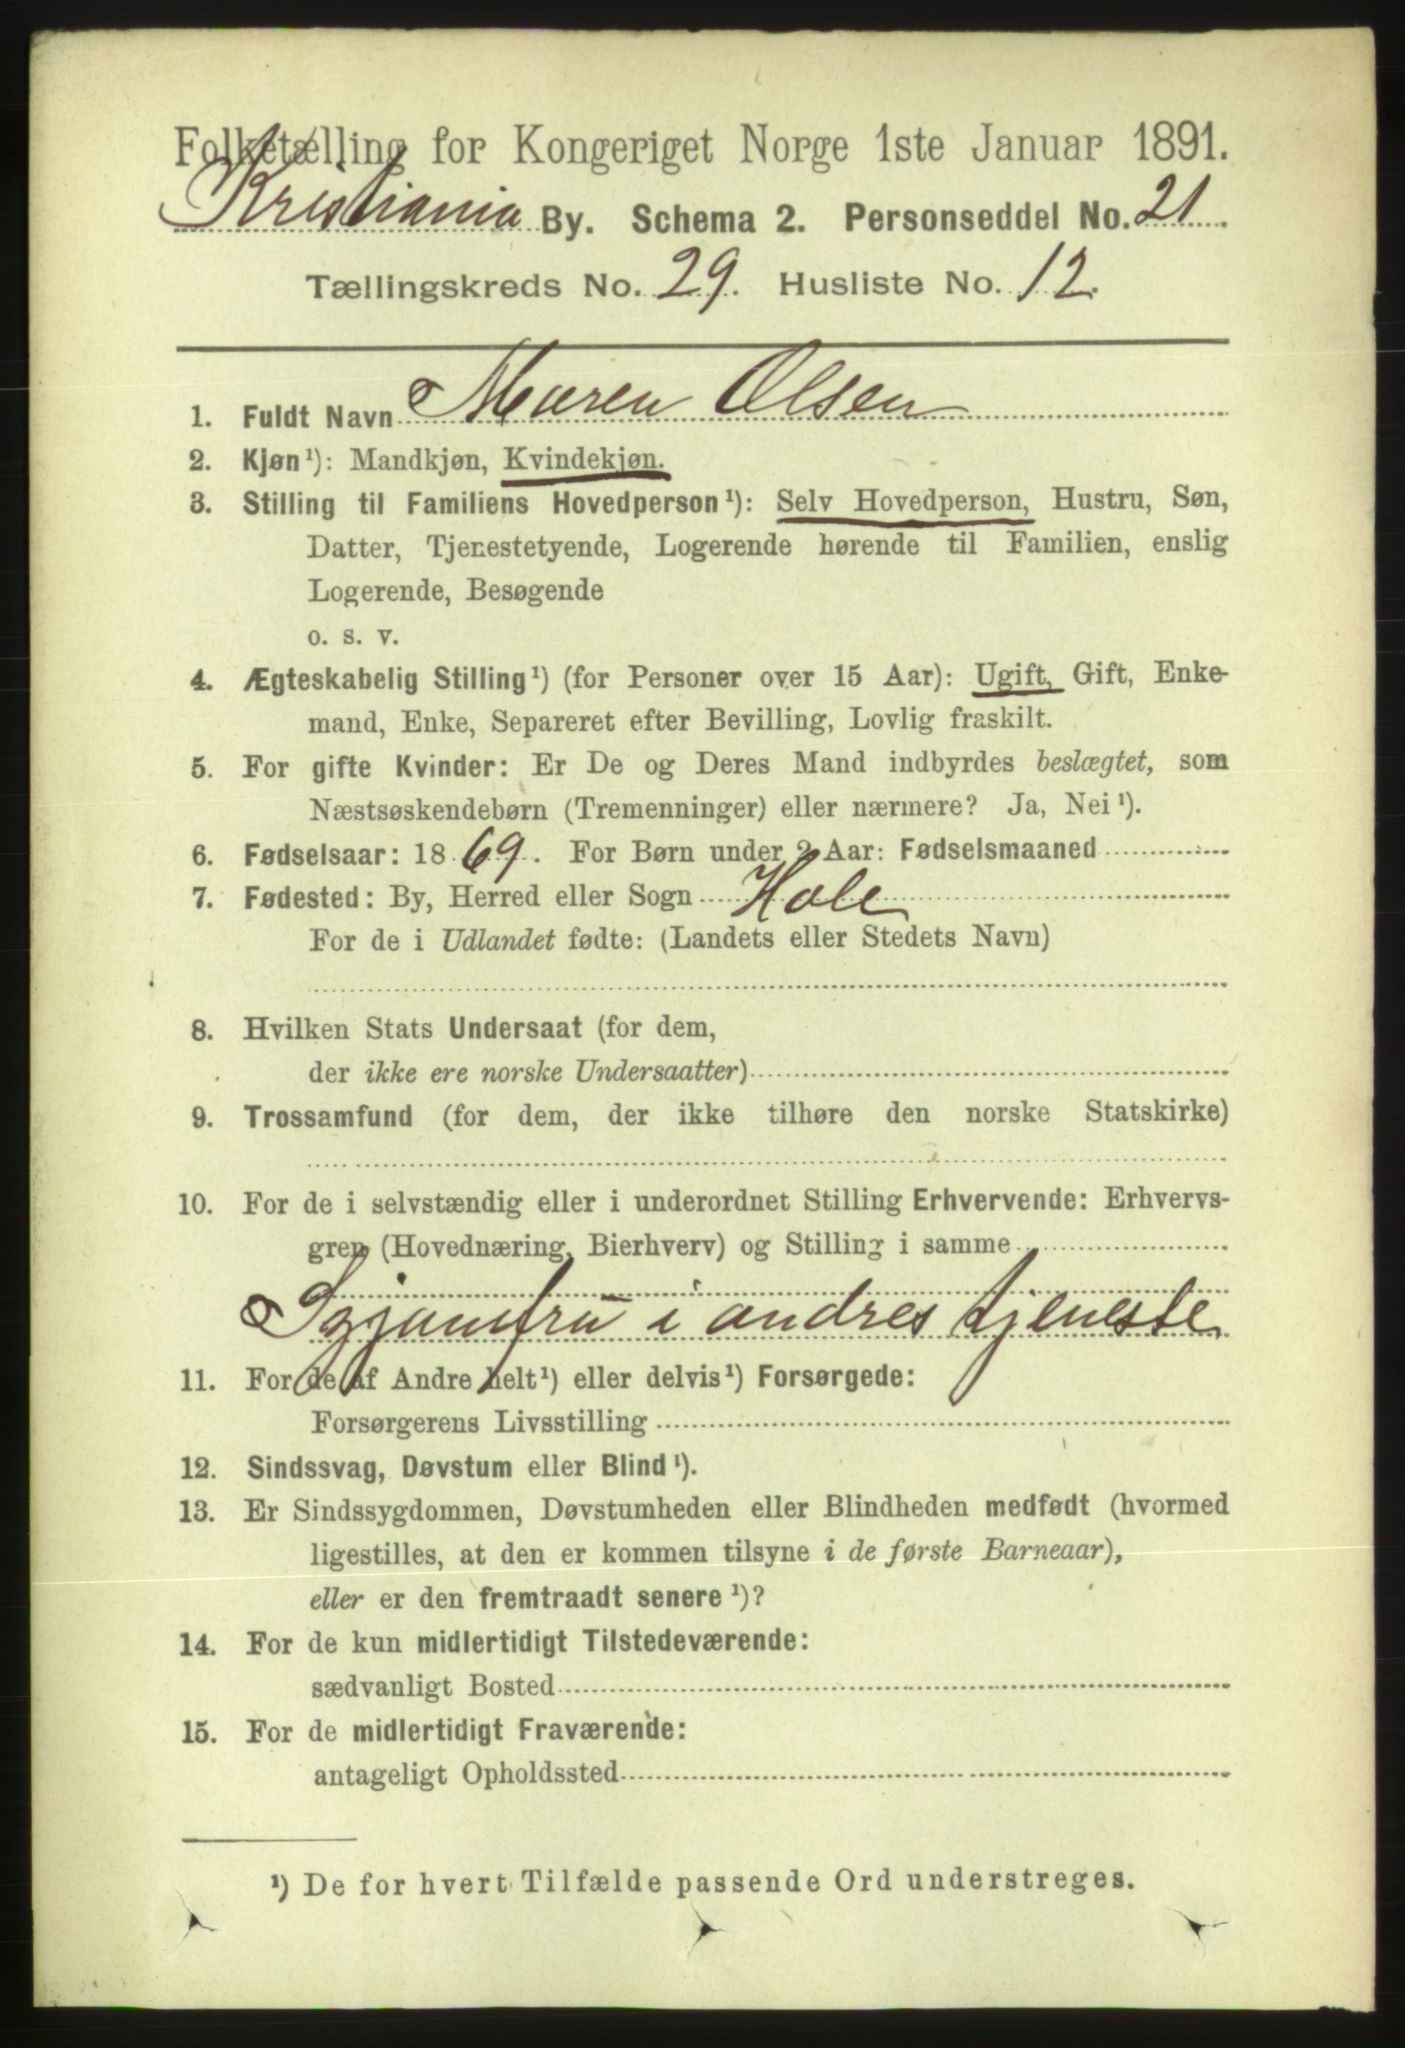 Folketælling for Kongeriget Norge 1ste Januar 1891.
Kristiania By. Schema 2. Personseddel No. 21.
Tællingskreds No. 29. Husliste No. 12.
1. Fuldt Navn Maren Olsen
2. Kjøn¹): Mandkjøn, Kvindekjøn.
3. Stilling til Familiens Hovedperson¹): Selv Hovedperson, Hustru, Søn,
Datter, Tjenestetyende, Logerende hørende til Familien, enslig
Logerende, Besøgende
o. s. v.
4. Ægteskabelig Stilling¹) (for Personer over 15 Aar): Ugift, Gift, Enke-
mand, Enke, Separeret efter Bevilling, Lovlig fraskilt.
5. For gifte Kvinder: Er De og Deres Mand indbyrdes beslægtet, som
Næstsøskendebørn (Tremenninger) eller nærmere? Ja, Nei¹).
6. Fødselsaar: 1869. For Børn under 2 Aar: Fødselsmaaned
7. Fødested: By, Herred eller Sogn Hole
For de i Udlandet fødte: (Landets eller Stedets Navn)
8. Hvilken Stats Undersaat (for dem,
der ikke ere norske Undersaatter)
9. Trossamfund (for dem, der ikke tilhøre den norske Statskirke)
10. For de i selvstændig eller i underordnet Stilling Erhvervende: Erhvervs-
gren (Hovednæring, Bierhverv) og Stilling i samme
Syjomfru i andres tjeneste
11. For de af Andre helt¹) eller delvis¹) Forsørgede:
Forsørgerens Livsstilling
12. Sindssvag, Døvstum eller Blind¹).
13. Er Sindssygdommen, Døvstumheden eller Blindheden medfødt (hvormed
ligestilles, at den er kommen tilsyne i de første Barneaar),
eller er den fremtraadt senere¹)?
14. For de kun midlertidigt Tilstedeværende:
sædvanligt Bosted
15. For de midlertidigt Fraværende:
antageligt Opholdssted
¹) De for hvert Tilfælde passende Ord understreges.